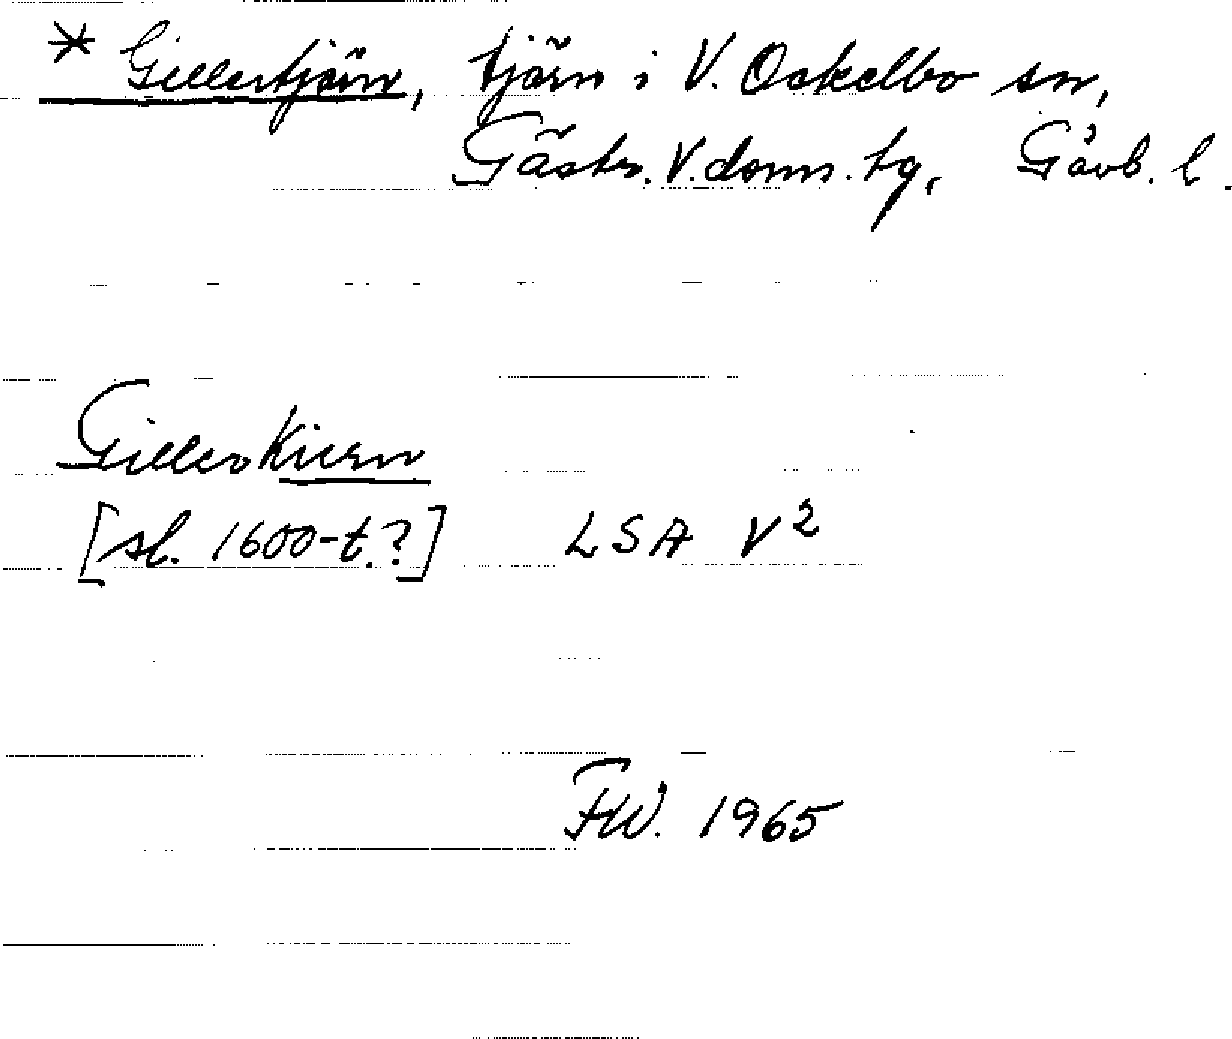 * Gillertjärn, tjärn i V. Ockelbo sn,
Gästr. V. doms. tg, Gävb. l.
Gillerkiern
[sl. 1600-t.?] LSA V²
FW. 1965